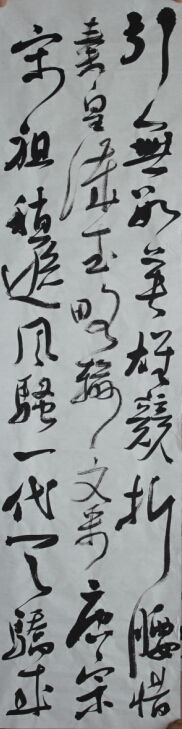 引無數英雄競折腰惜
秦皇漢武略輸文采唐宗
宋祖稍遜風騷一代天驕成